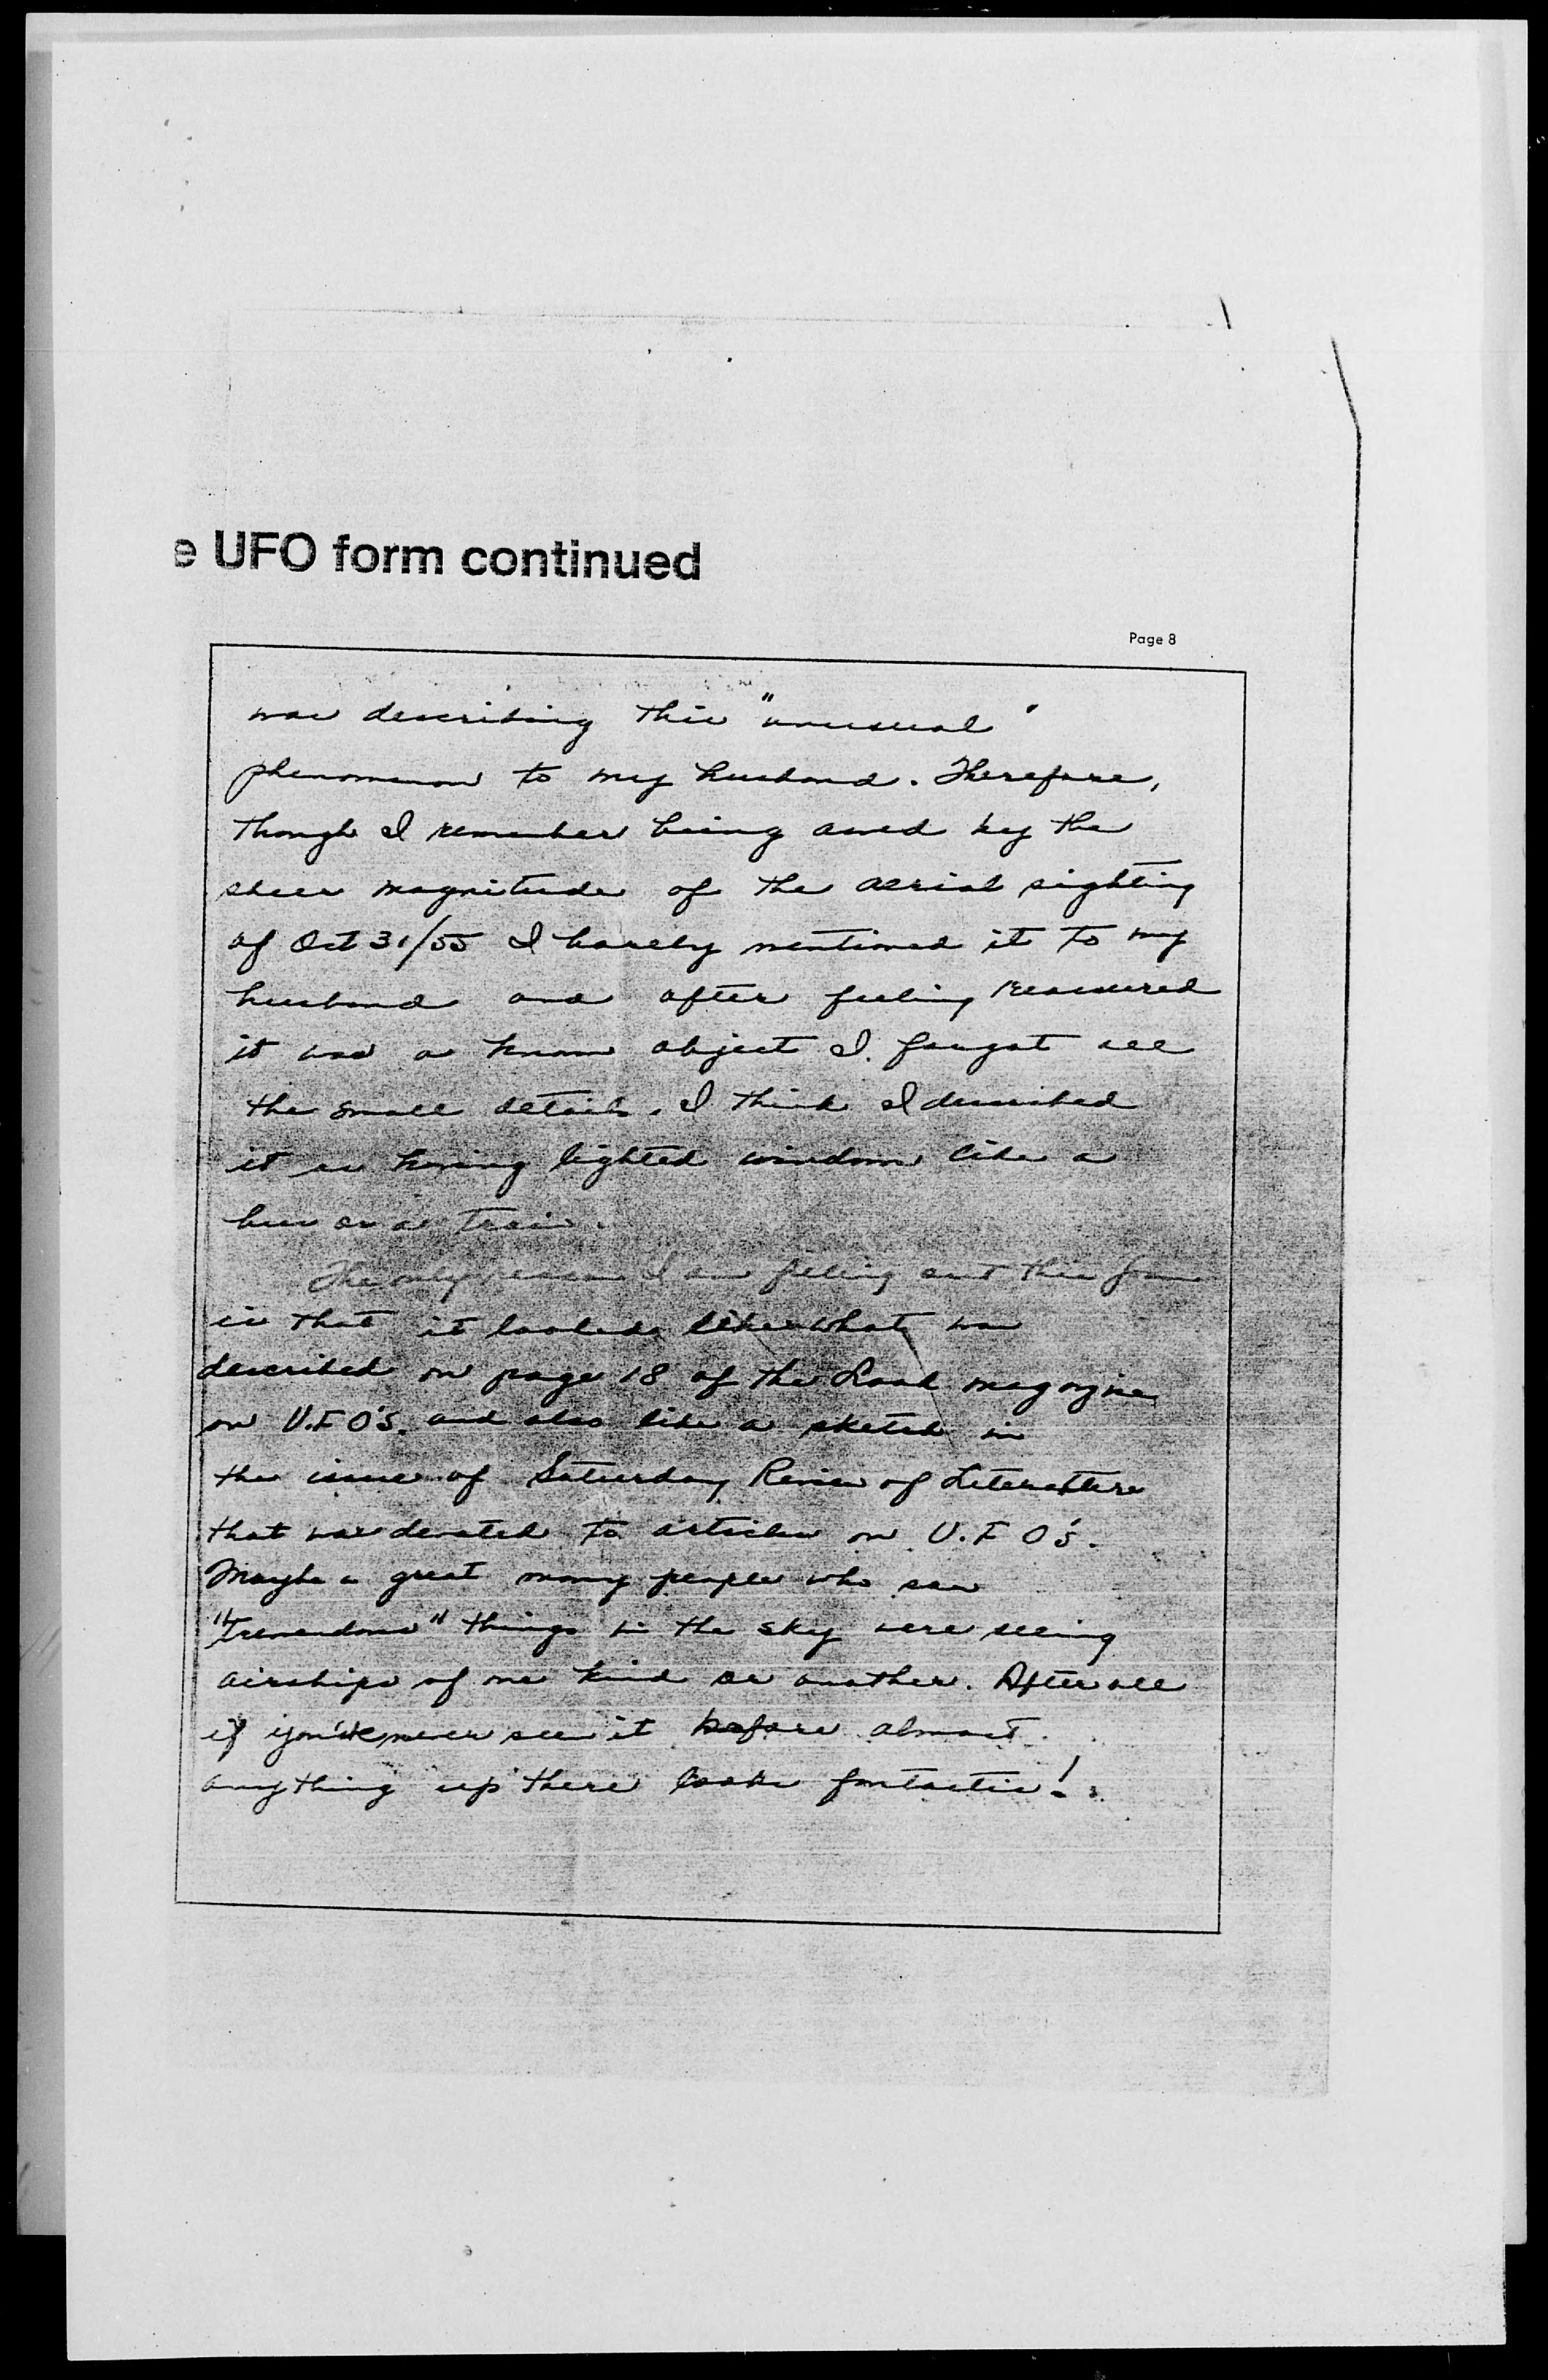 e UFO form continued
Page 8
was describing this "unusual"
phenomenon to my husband. Therefore,
though I remember being awed by the
sheer magnitude of the aerial sighting
of Oct 31/55 I barely mentioned it to my
husband and after feeling reassured
it was a known object I forgot all
the small details. I think I described
it as having lighted windows like a
bus or a train.
The only reason I am filling out this form
is that it looked like what was
described on page 18 of the Look magazine
on U.F.O's. and also like a sketch in
the issue of Saturday Review of Literature
that was devoted to articles on U.F.O's.
Maybe a great many people who saw
"tremendous" things in the sky were seeing
airships of one kind or another. After all
if you've never seen it before almost
anything up there looks fantastic!